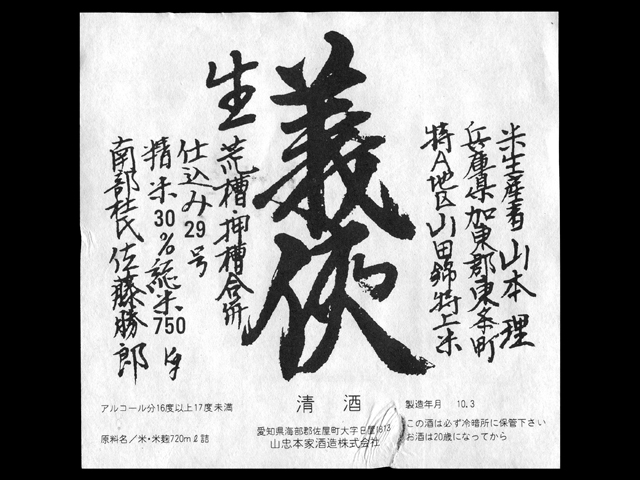 米生産者山本理
兵庫県加東郡東条町
特A地区山田錦特上米
義侠
生
荒槽・押槽合併
仕込み29号
精米30%総米750㎏
南部杜氏佐藤勝郎
清酒
製造年月 10.3
アルコール分16度以上17度未満
この酒は必ず冷暗所に保管下さい
愛知県海部郡佐屋町大字日置1813
お酒は20歳になってから
原料名/米・米麹720mℓ詰
山忠本家酒造株式会社